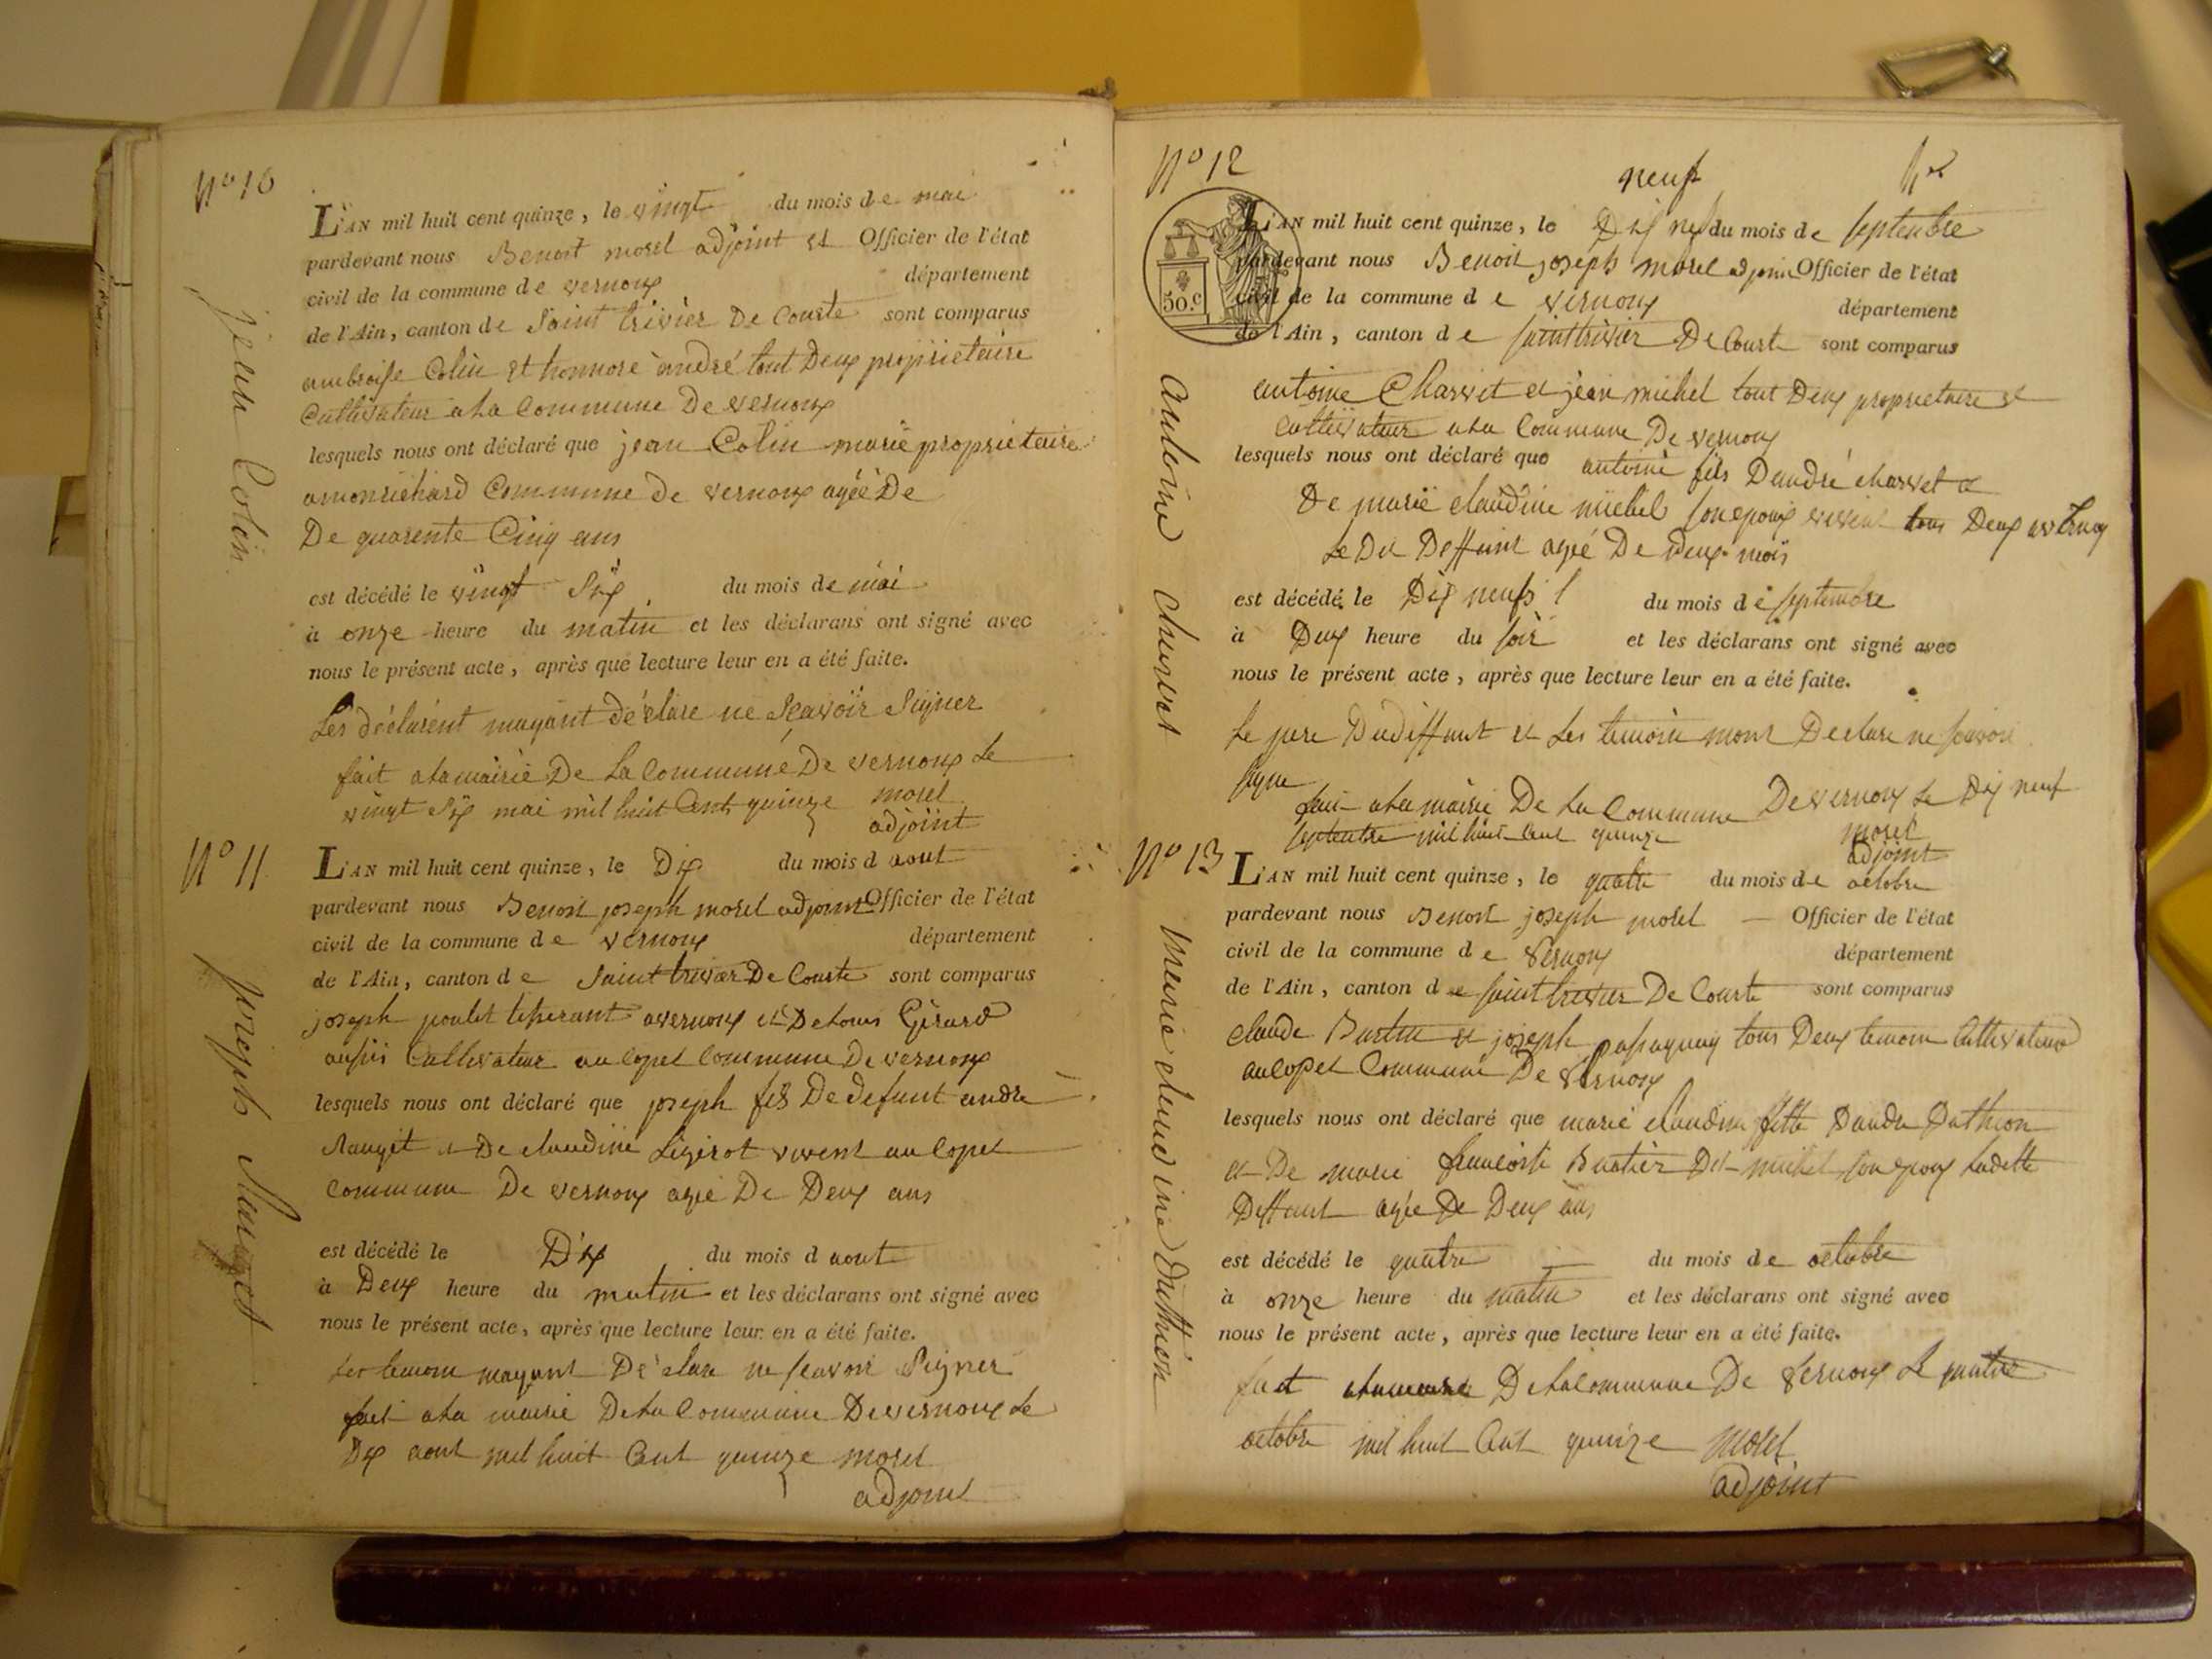 N° 10
L'AN mil huit cent quinze, le vingt du mois de mai
pardevant nous Benoit morel adjoint et Officier de l'état
civil de la commune de vernoux département
de l'Ain, canton de Saint trivier De Courte sont comparus
ambroise Colin et honnore andré tout Deux propriétaire
Cultivateur a la Commune De vernoux
lesquels nous ont déclaré que jean Colin marié propriétaire
a monrichard Commune de vernoux agéé De
De quarente Cinq ans
est décédé le vingt Six du mois de mai
à onze heure du matin et les déclarans ont signé avec
nous le présent acte, après que lecture leur en a été faite.
Les déclarent mayant déclare ne Scavoir Signer
fait a la mairie De La Commune De vernoux Le
vingt Six mai mil huit Cent quinze morel
adjoint
jean Colin
N° 11
L'AN mil huit cent quinze, le Dix du mois d aout
pardevant nous Benoit joseph morel adjoint Officier de l'état
civil de la commune de vernoux département
de l'Ain, canton de Saint trivier De Courte sont comparus
joseph poulet avernoux et De Louis Girard
aussis Cultivateur au Copet Commune De vernoux
lesquels nous ont déclaré que joseph fils De defunt andre
Mauget et De claudine Ligerot vivent au Copet
Commune De vernoux agé De Deux ans
est décédé le Dix du mois d aout
à Deux heure du matin et les déclarans ont signé avec
nous le présent acte, après que lecture leur en a été faite.
Les temoin mayant Déclare ne scavoir Signer
fait a la mairie De La Commune De vernoux Le
Dix aout mil huit Cent quinze morel
adjoint
joseph Mauget
N° 12
neuf
L'AN mil huit cent quinze, le Dix nef du mois de septembre
pardevant nous Benoit joseph morel adjoin Officier de l'état
civil de la commune de vernoux département
de l'Ain, canton de saint trivier De Courte sont comparus
50.c
antoine Charvet et jean michel tout Deux propriettaire et
Cultivateur a la Commune De vernoux
lesquels nous ont déclaré que antoine fils Dandré charvet et
De marie claudine michel son epoux vivent tous Deux
Le Dit Deffunt agéé De Deux mois
est décédé le Dix neufs du mois de septembre
à Deux heure du soir et les déclarans ont signé avec
nous le présent acte, après que lecture leur en a été faite.
Le pere Dudiffunt et Les temoin mont Declare ne scavoir
signe
fait a la mairie De La Commune De vernoux Le Dix neuf
septembre mil huit Cent quinze morel
adjoint
antoine charvet
N° 13
L'AN mil huit cent quinze, le quatre du mois de octobre
pardevant nous Benoit joseph morel Officier de l'état
civil de la commune de vernoux département
de l'Ain, canton de saint trivier De Courte sont comparus
claude et joseph tous Deux temoin Cultivateur
au Copet Commune De vernoux
lesquels nous ont déclaré que marie claudine fille Dandre Duthion
et De marie francoise Dit michel son epoux Ladette
Deffunt agée De Deux ans
est décédé le quatre du mois de octobre
à onze heure du matin et les déclarans ont signé avec
nous le présent acte, après que lecture leur en a été faite.
fait a la mairie De La Commune De vernoux Le quatre
octobre mil huit Cent quinze morel
adjoint
marie claudine Duthion